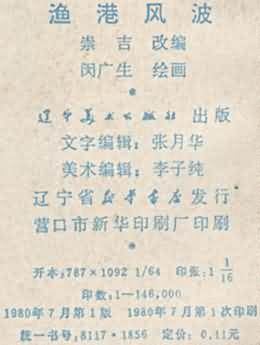 渔港风波
崇吉 改编
闵广生 绘画
辽宁美术出版社 出版
文字编辑：张月华
美术编辑：李子纯
辽宁省新华书店发行
营口市新华印刷厂印刷
开本：787×1092 1/64 印张：1 1/16
印数：1—146,000
1980年7月第1版 1980年7月第1次印刷
统一书号：8117·1856 定价：0.11元